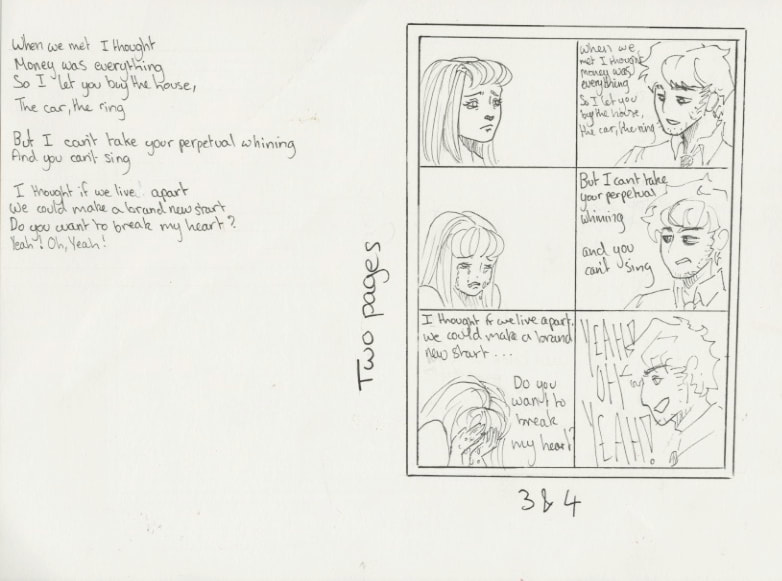 When we met I thought
Money was everything
So I let you buy the house,
The car, the ring
But I can't take your perpetual whining
And you can't sing
I thought if we live apart
We could make a brand new start
Do you want to break my heart?
Yeah! Oh, Yeah!
Two pages
When we
met I thought
money was
everything
So I let you
buy the house,
the car, the ring
But I can't take
your perpetual
whining
and you
can't sing
I thought if we live apart,
we could make a brand
new start ...
Do you
want to
break
my heart?
YEAH!
OH
YEAH!
3 & 4